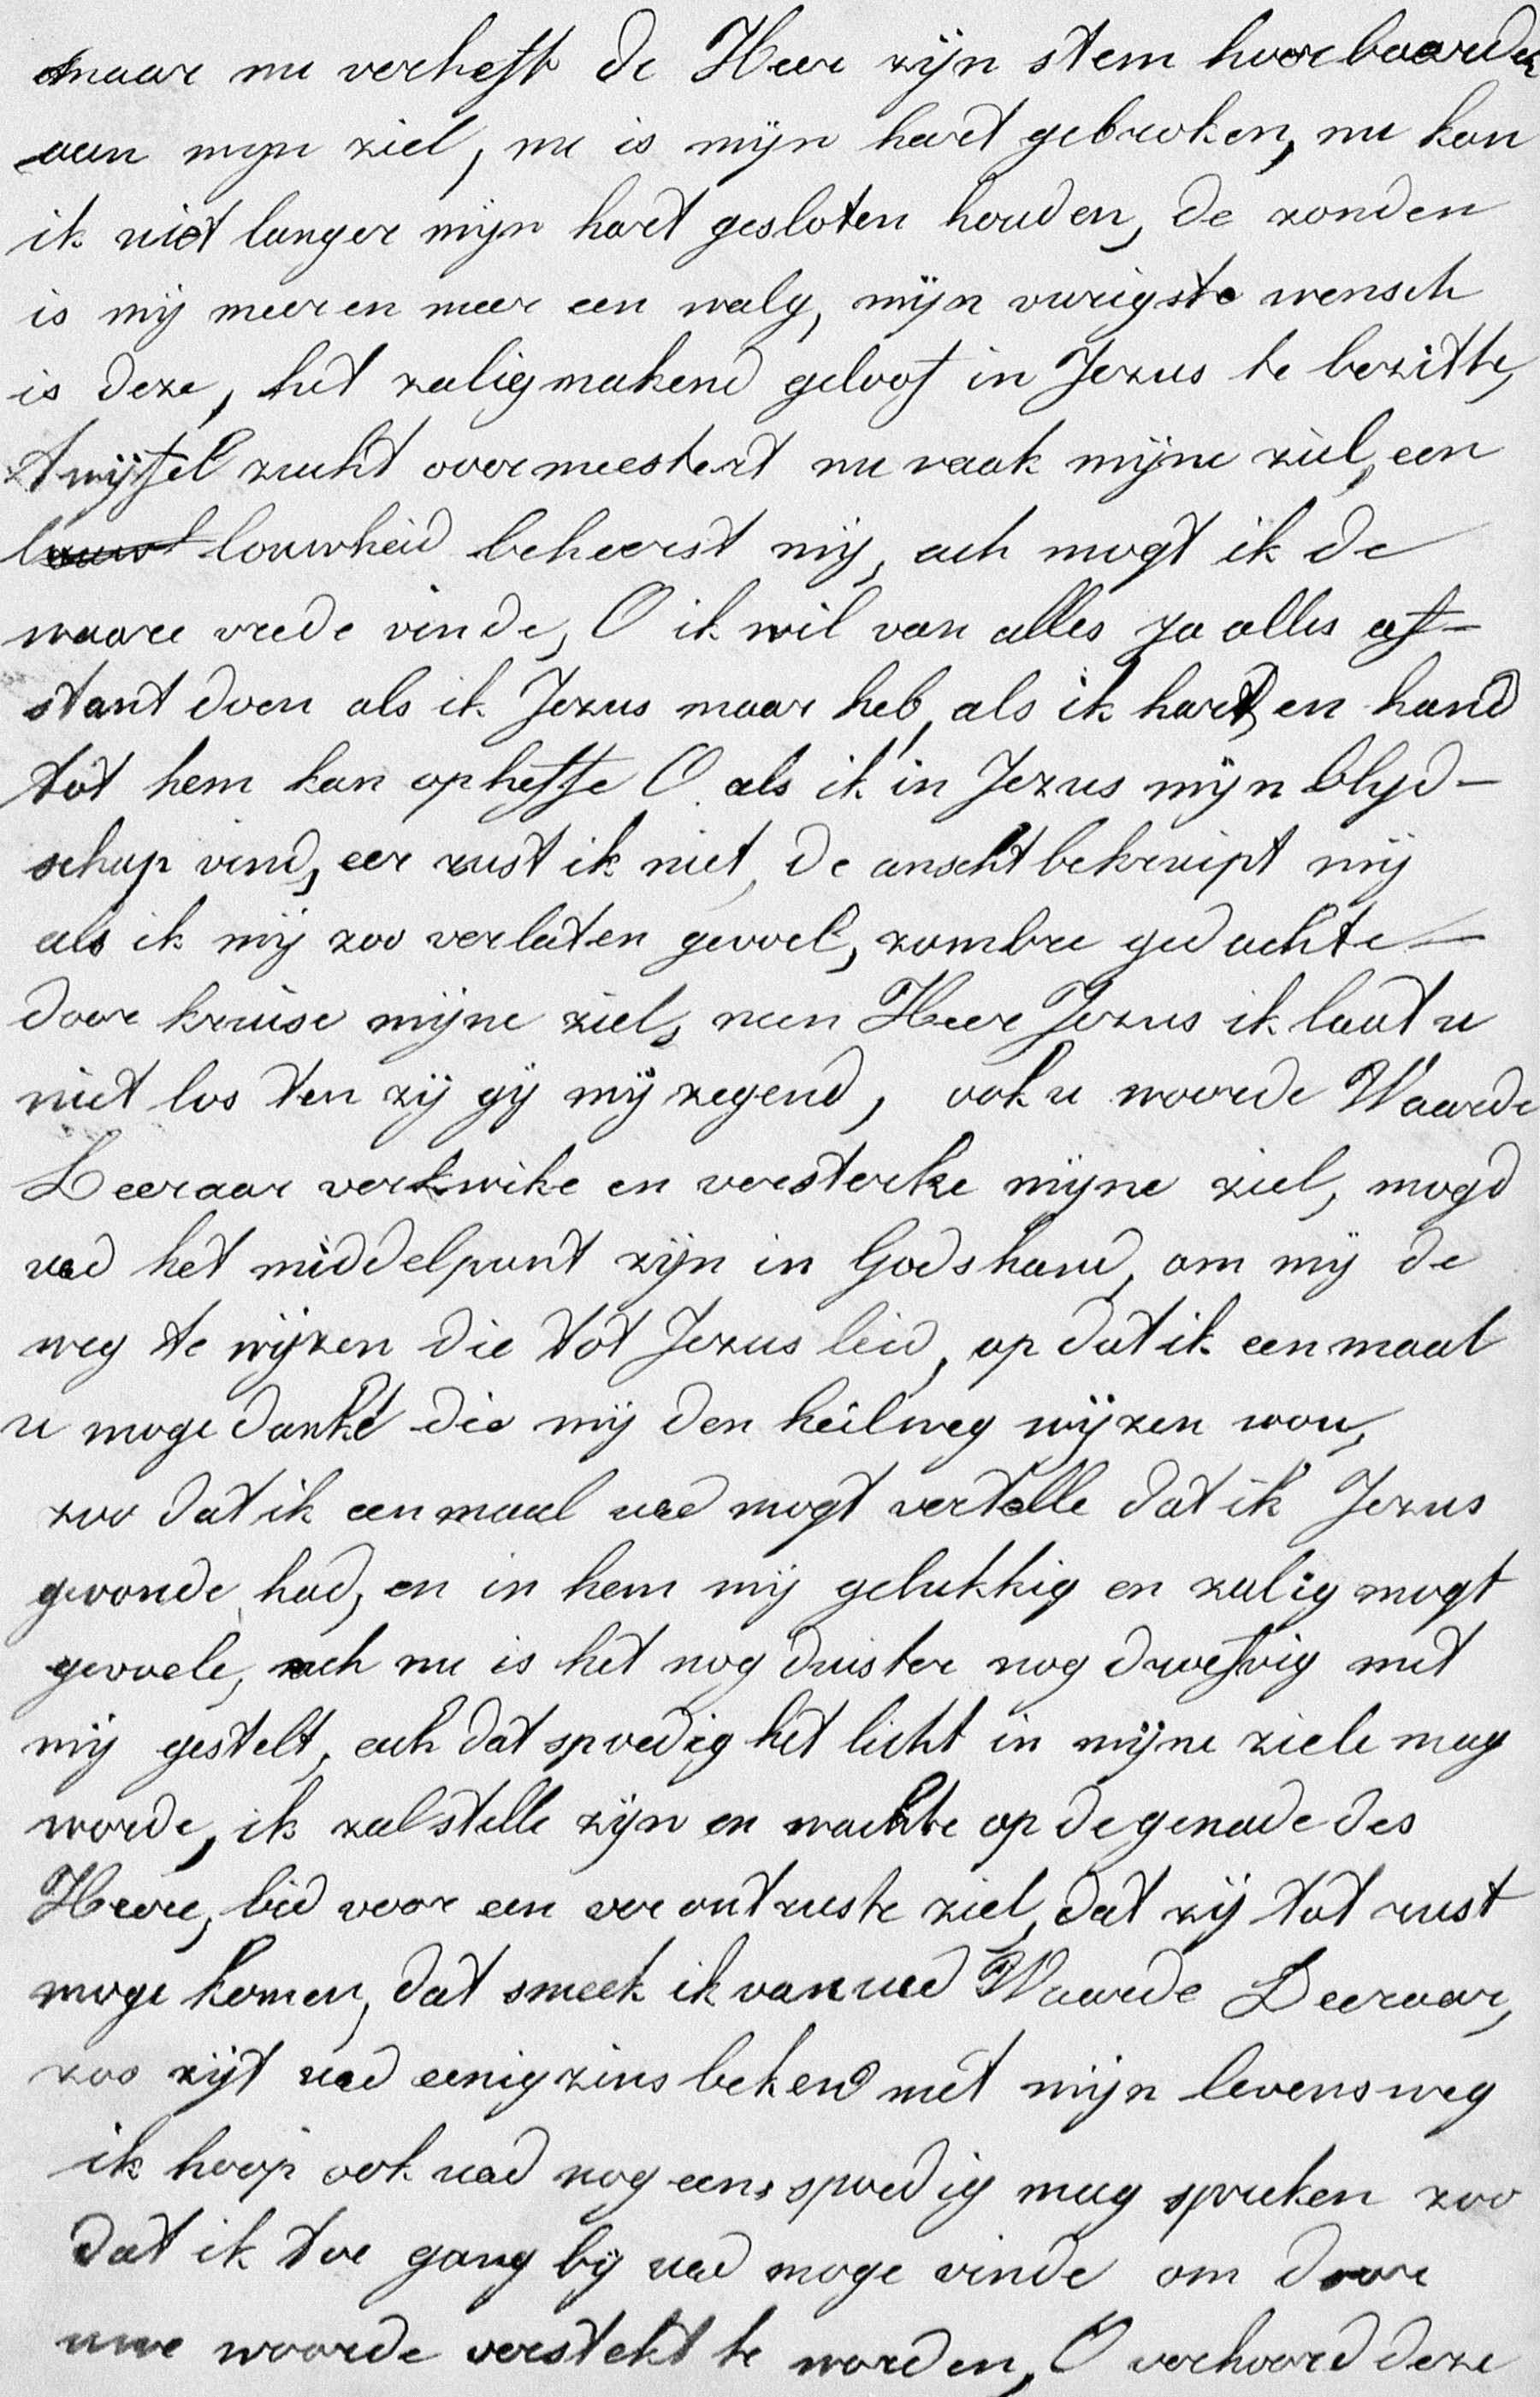 maar nu verheft de Heer zijn stem hoorbaarder
aan mijn ziel, nu is mijn hart gebroken, nu kan
ik niet langer mijn hart gesloten houden, de zonden
is mij meer en meer een walg, mijn vurigste wensch
is deze, het zaligmakend geloof in Jezus te bezitte,
twijfel zucht overmeestert nu vaak mijne ziel, een
louwheid beheerst mij, ach mogt ik de
waare vrede vinde, O ik wil van alles ja alles af-
stant doen als ik Jezus maar heb, als ik hart en hand
tot hem kan opheffe O als ik in Jezus mijn blijd-
schap vind, eer rust ik niet, de anscht bekruipt mij
als ik mij zoo verlaten gevoel, zombre gedachte
door kruise mijne ziel, neen Heer Jezus ik laat u
niet los ten zij gij mij zegend, ook u woorde Waarde
Leeraar verkwike en versterke mijne ziel, mogd
ued het middelpunt zijn in Gods hand, om mij de
weg te wijzen die tot Jezus leid, op dat ik eenmaal
u moge danke die mij den heilweg wijzen wou,
zoo dat ik een maal ued mogt vertelle dat ik Jezus
gevonde had, en in hem mij gelukkig en zalig mogt
gevoele, ach nu is het nog duister nog droefvig met
mij gestelt, ach dat spoedig het licht in mijne ziele mag
worde, ik zal stelle zijn en wachte op de genade des
Heere, bid voor een verontruste ziel, dat zij tot rust
moge komen, dat smeek ik van ued Waarde Leeraar,
zoo zijt ued eenigzins bekend met mijn levensweg
ik hoop ook ued nog eens spoedig mag spreken zoo
dat ik toe gang bij ued moge vinde om door
uwe woorde verstekt te worden, O verhoord deze